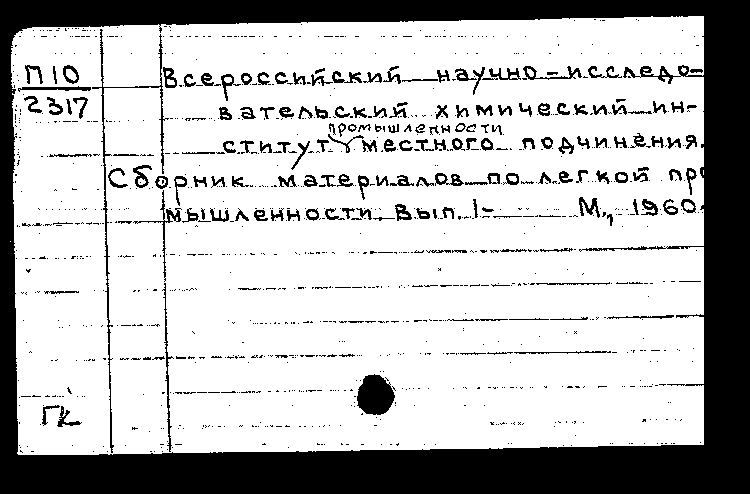 П10
2317
Всероссийский научно-исследо-
вательский химический ин-
промышленности
ститут местного подчинения.
Сборник материалов по легкой про
мышленности. Вып. 1- М., 1960.
ГК